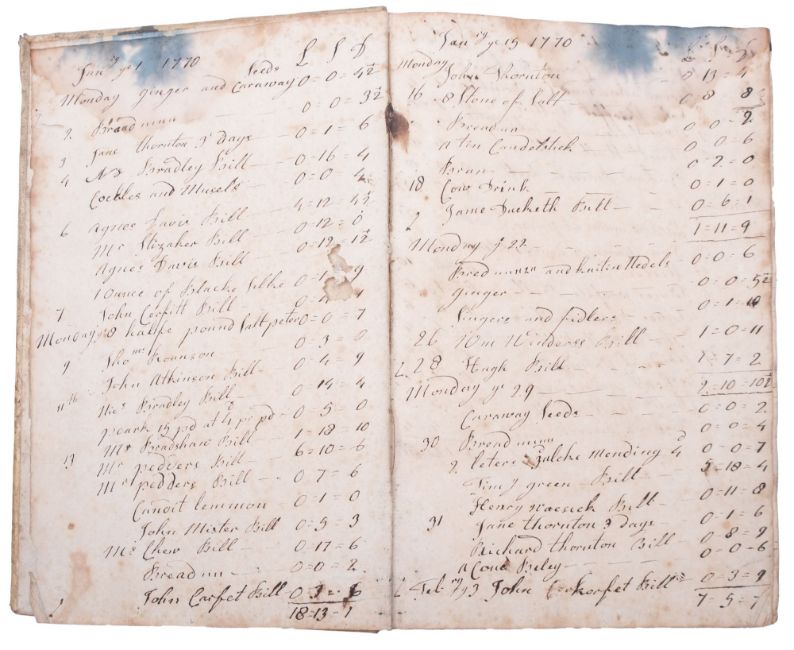 Jan ry ye 1 1770 L S D
Monday ginger and Caraway Seeds 0=0=4½
2 Breadmun 0=0=3½
3 Jane thornton 3 days 0=1=6
4 Mrs Bradley Bill 0=16=4
Cockles and Musels 0=0=4
6 Agnes Davis Bill 4=12=4½
Mr Stizaker Bill 0=12=0
Agnes Davis Bill 0=12=1½
1 Ounce of Blacke Silke 0=1=9
7 John Corfitt Bill
Monday ye 8 halfe pound Salt peter 0=0=7
9 Thoms Ronnson 0=3=0
John Atkinson Bill 0=4=9
11th Mrs Bradley Bill 0=14=4
peark 15 pd at 4 pr pd 0=5=0
Mr Bradshaw Bill 1=18=10
13 Mr pedders Bill 6=10=6
Mr pedders Bill 0=7=6
Candit lemmon 0=1=0
John Mister Bill 0=5=3
Mr Chew Bill 0=17=6
Breadmun 0=0=2
John Carfet Bill 0=3=6
18=13=1
Jan ry ye 15 1770
Monday John Thornton 0 13=4
16 8 Stone of Salt 0=8 8
Breadmun 0 0=2
a tin Candelstick 0 0=6
Bran 0=2=0
18 Cow Drink 0=1=0
Jame Backeth Bill 0=6=1
1=11=9
Monday ye 22
Bredmunn and kniten Nedels 0=0=6
Ginger 0=0=5½
Singers and fidlers 0=1=10
26 Wm Winderss Bill 1=0=11
28 Hugh Bill 1=7=2
Monday ye 29 2=10=10½
Caraway Seeds 0=0=2
30 Breadmun 0=0=4
2 Mending 4d 0=0=7
Jim J green Bill 5=18=4
Henry Bill 0=11=8
31 Jane thornton 3 days 0=1=6
Richard thornton Bill 0=8=9
a Coud 0=0=6
Feb ry ye 3 John Korfet Bill 0=3=9
7=5=7